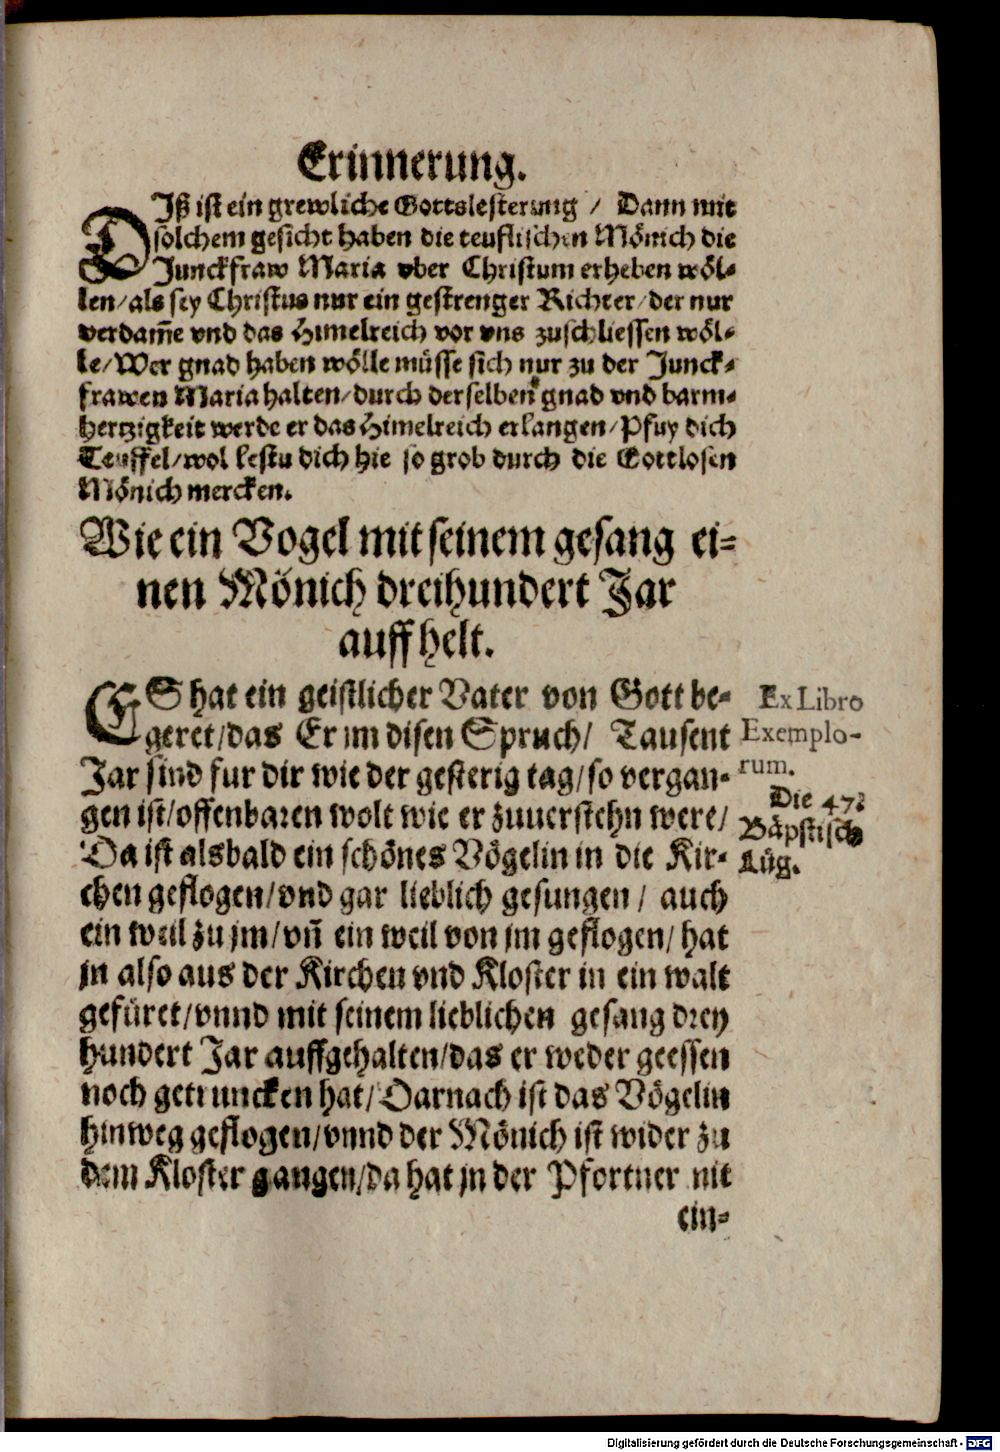 Erinnerung.
DIß ist ein grewliche Gottslesterung / Dann mit
solchem gesicht haben die teuflischen Mönich die
Junckfraw Maria vber Christum erheben wöl-
len/als sey Christus nur ein gestrenger Richter/der nur
verdam̄e vnd das Himelreich vor vns zuschliessen wöl-
le/Wer gnad haben wölle müsse sich nur zu der Junck-
frawen Maria halten/durch derselben gnad vnd barm-
hertzigkeit werde er das Himelreich erlangen/Pfuy dich
Teuffel/wol lestu dich hie so grob durch die Gottlosen
Mönich mercken.
Wie ein Vogel mit seinem gesang ei-
nen Mönich dreihundert Jar
auff helt.
ES hat ein geistlicher Vater von Gott be-
geret/das Er im disen Spruch/ Tausent
Jar sind fur dir wie der gesterig tag/so vergan-
gen ist/offenbaren wolt wie er zuuerstehn were/
Da ist alsbald ein schönes Vögelin in die Kir-
chen geflogen/vnd gar lieblich gesungen/ auch
ein weil zu jm/vn̄ ein weil von jm geflogen/hat
jn also aus der Kirchen vnd Kloster in ein walt
gefüret/vnnd mit seinem lieblichen gesang drey
hundert Jar auffgehalten/das er weder geessen
noch getruncken hat/Darnach ist das Vögelin
hinweg geflogen/vnnd der Mönich ist wider zu
dem Kloster gangen/da hat jn der Pfortner nit
ein-
Ex Libro
Exemplo-
rum.
Die 47.
Bäpstisch
Lüg.
Digitalisierung gefördert durch die Deutsche Forschungsgemeinschaft - DFG